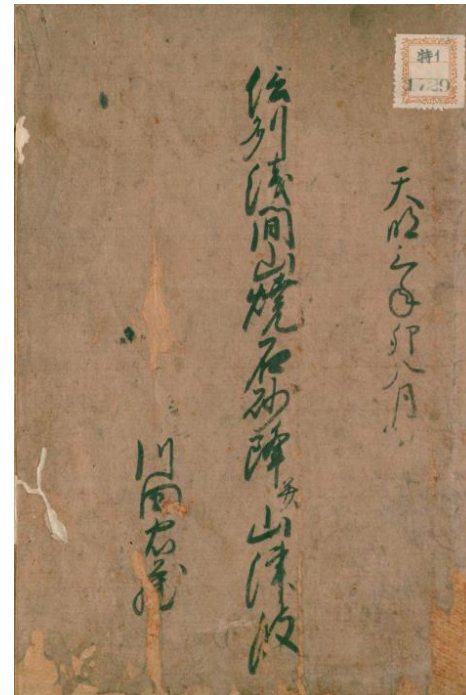 特1
1729
天明三年卯八月
信州浅間山焼石砂降并山津波
川田